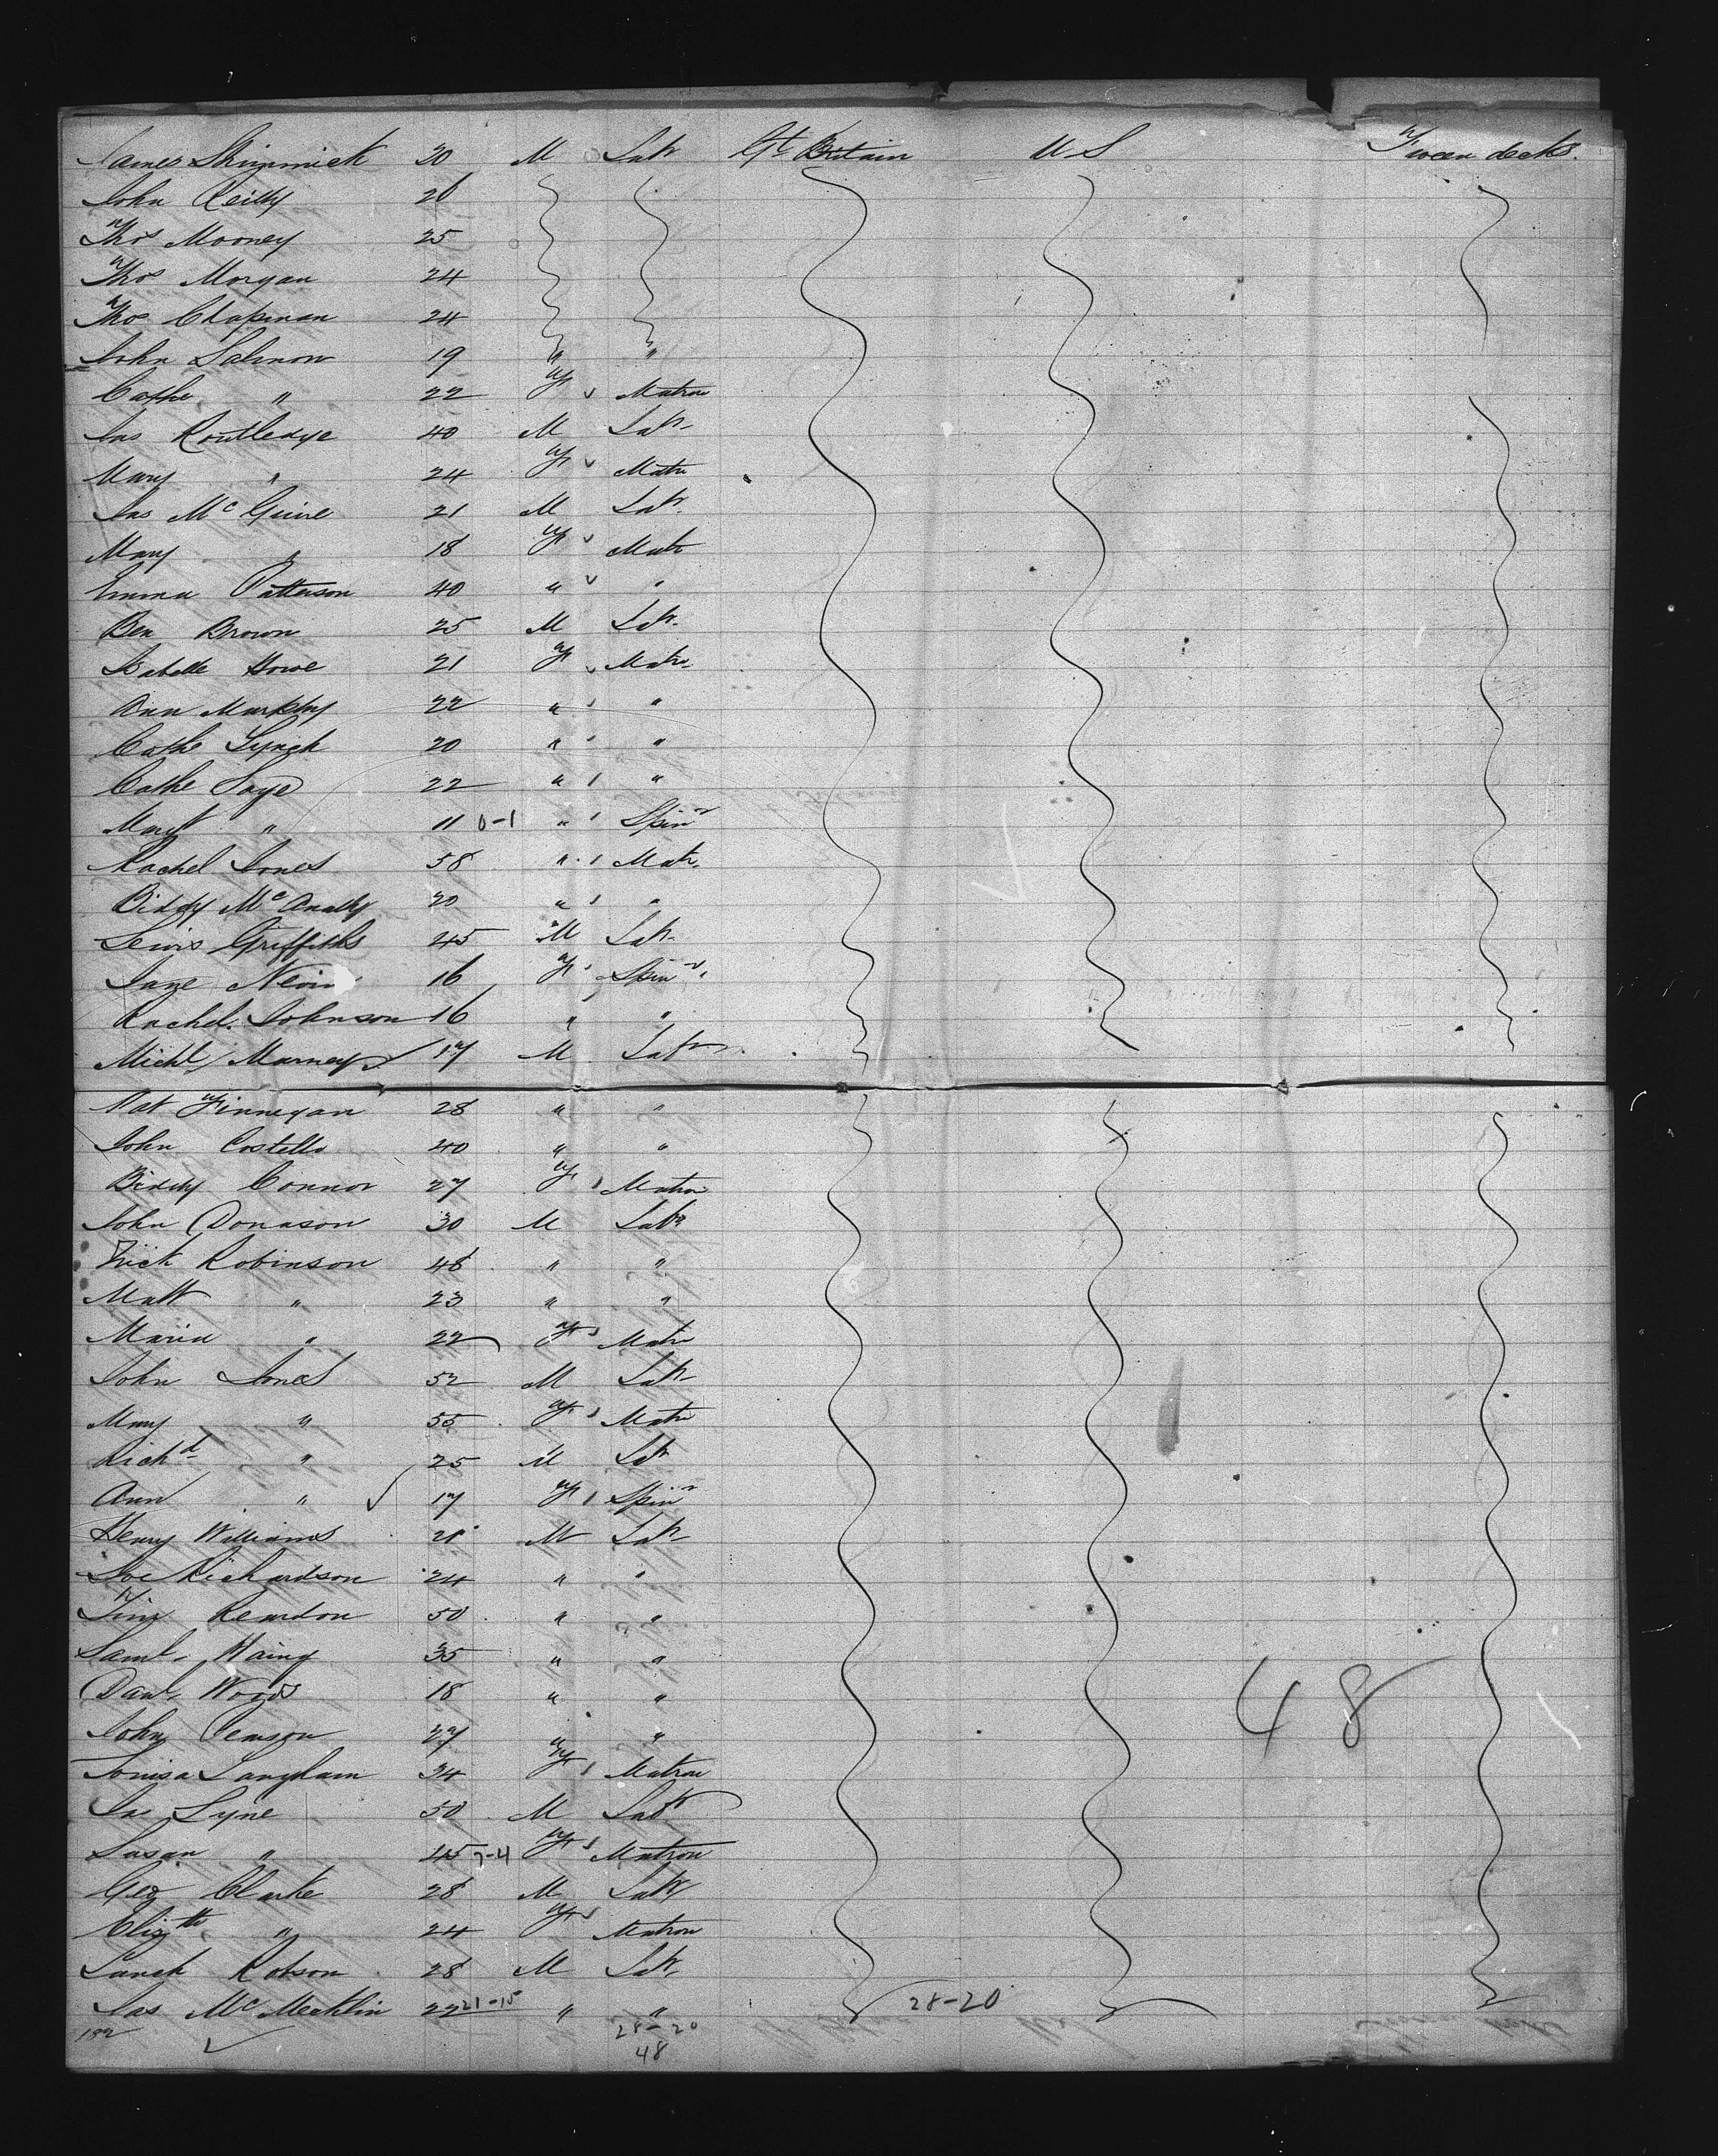 James 30 M Labr Gt Britain U S Tween decks.
John Reilly 26
Thos Mooney 25
Thos Morgan 24
Thos Chapman 24
John Salmon 19 " "
Cathe " 22 F Matron
Jas Routledge 40 M Labr
Mary " 24 F Matr
Jas McGuire 21 M Labr
Mary " 18 F Matr
Emma Patterson 40 " "
Ben Brown 25 M Labr
Isabella Howe 21 F Matr
Ann Murphy 22 " "
Cathe Lynch 20 " "
Cathe 22 " "
Margt " 11 0-1 " Spinr
Rachel Jones 58 " Matr
Biddy McAnally 20 " "
Lewis Griffiths 45 M Labr
Jane 16 F Spinr
Rachel Johnson 16 " "
Michl Marney 17 M Labr
Pat Finnegan 28 " "
John Costello 40 " "
Biddy Connor 27 F Matron
John Donason 30 M Labr
Robinson 48 " "
Matt " 23 " "
Maria " 22 F Matr
John Jones 52 M Labr
Mary " 55 F Matr
Richd " 25 M Labr
Ann " 17 F Spinr
Henry Williams 21 M Labr
Joe Richardson 24 " "
Tim Reardon 50 " "
Saml 35 " "
Danl Woods 18 " "
48
John 27 " "
Louisa Langham 34 F Matron
Jas Lyne 50 M Labr
Susan " 45 7-4 F Matron
Geo Clarke 28 M Labr
Elizth " 24 F Matron
Robson 28 M Labr
Jas McMecklin 22 21-15 " " 28-20
182 28-20
48